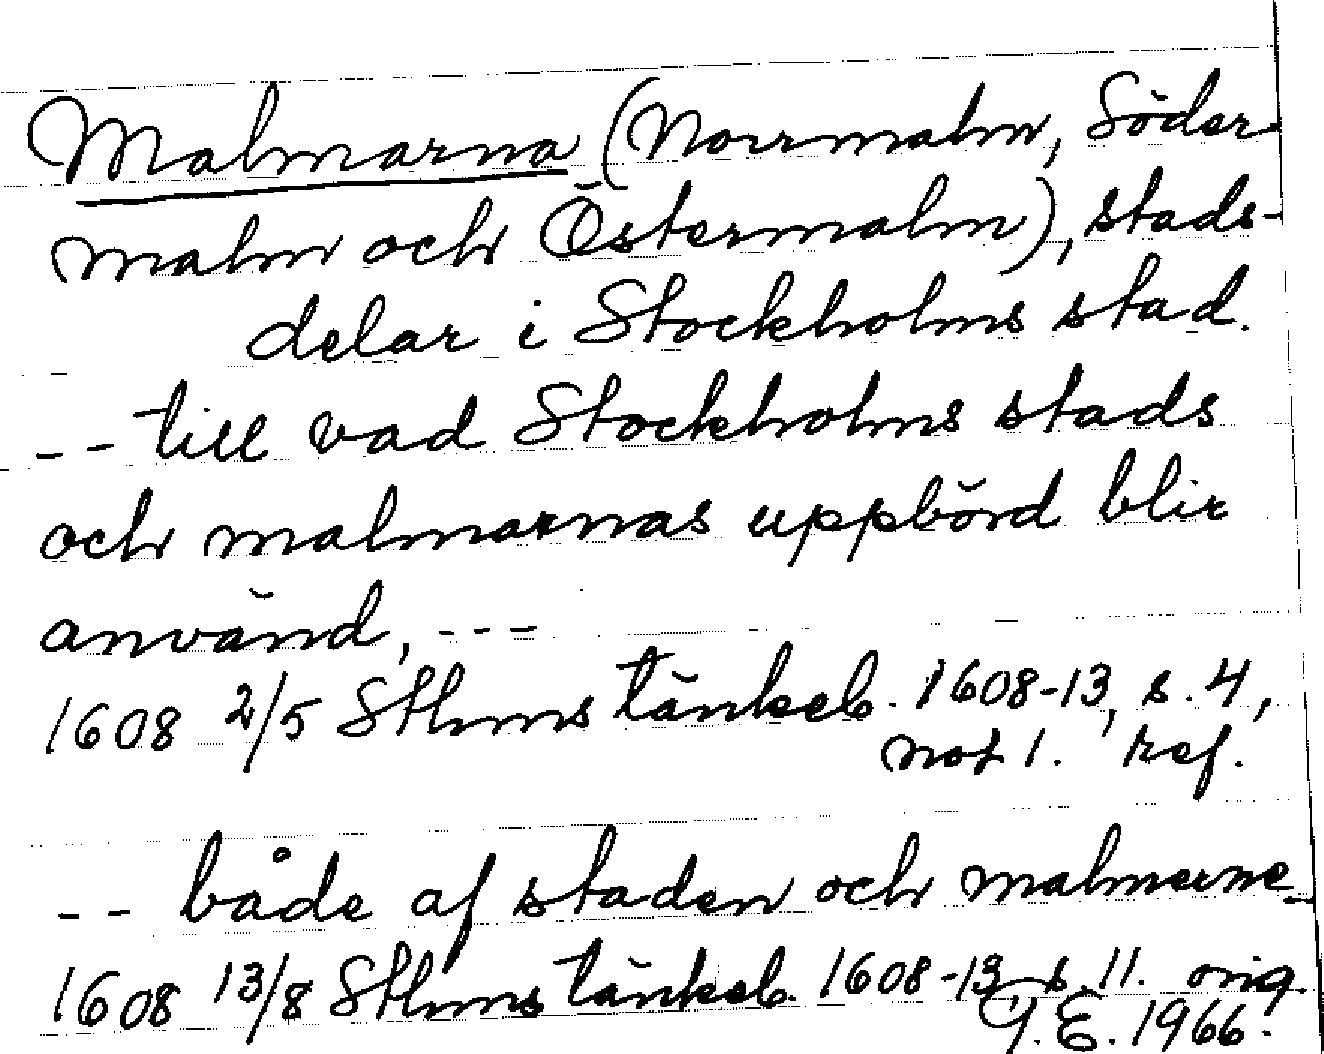 Malmarna (Norrmalm, Söder-
malm och Östermalm), stads-
delar i Stockholms stad.
-- till vad Stockholms stads
och malmarnas uppbörd blir
använd, ---
1608 2/5 Sthms tänkeb. 1608-13, s. 4,
not 1. ref.
-- både af staden och malmerne
1608 13/8 Sthms tänkeb. 1608-13, s. 11. orig.
G.E. 1966.